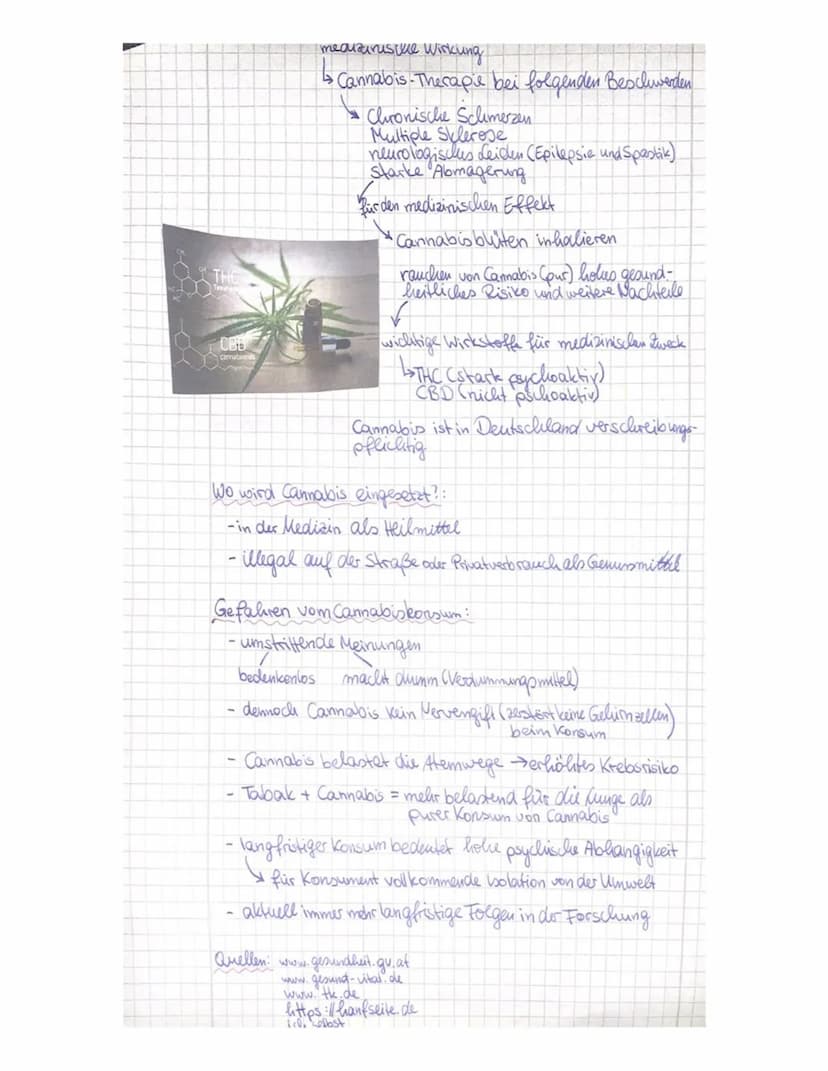 medizinische Wirkung
↳ Cannabis-Therapie bei folgenden Beschwerden
↘ Chronische Schmerzen
Multiple Sklerose
neurologisches Leiden (Epilepsie und Spastik)
starke Abmagerung
für den medizinischen Effekt
↘ Cannabisblüten inhalieren
rauchen von Cannabis (pur) hohes gesund-
heitliches Risiko und weitere Nachteile
wichtige Wirkstoffe für medizinischen Zweck
↳ THC (stark psychoaktiv)
CBD (nicht pschoaktiv)
THC
CBD
Cannabis ist in Deutschland verschreibungs-
pflichtig
Wo wird Cannabis eingesetzt?:
- in der Medizin als Heilmittel
- illegal auf der Straße oder Privatverbrauch als Genussmittel
Gefahren vom Cannabiskonsum:
- umstrittende Meinungen
bedenkenlos macht dumm (Verdummungsmittel)
- dennoch Cannabis kein Nervengift (zerstört keine Gehirnzellen)
beim Konsum
- Cannabis belastet die Atemwege → erhöhtes Krebsrisiko
- Tabak + Cannabis = mehr belastend für die Lunge als
purer Konsum von Cannabis
- langfristiger Konsum bedeutet hohe psychische Abhängigkeit
↳ für Konsument vollkommende Isolation von der Umwelt
- aktuell immer mehr langfristige Folgen in der Forschung
Quellen: www.gesundheit.gv.at
www.gesund-vital.de
www.tk.de
https://hanfseite.de
Ich selbst